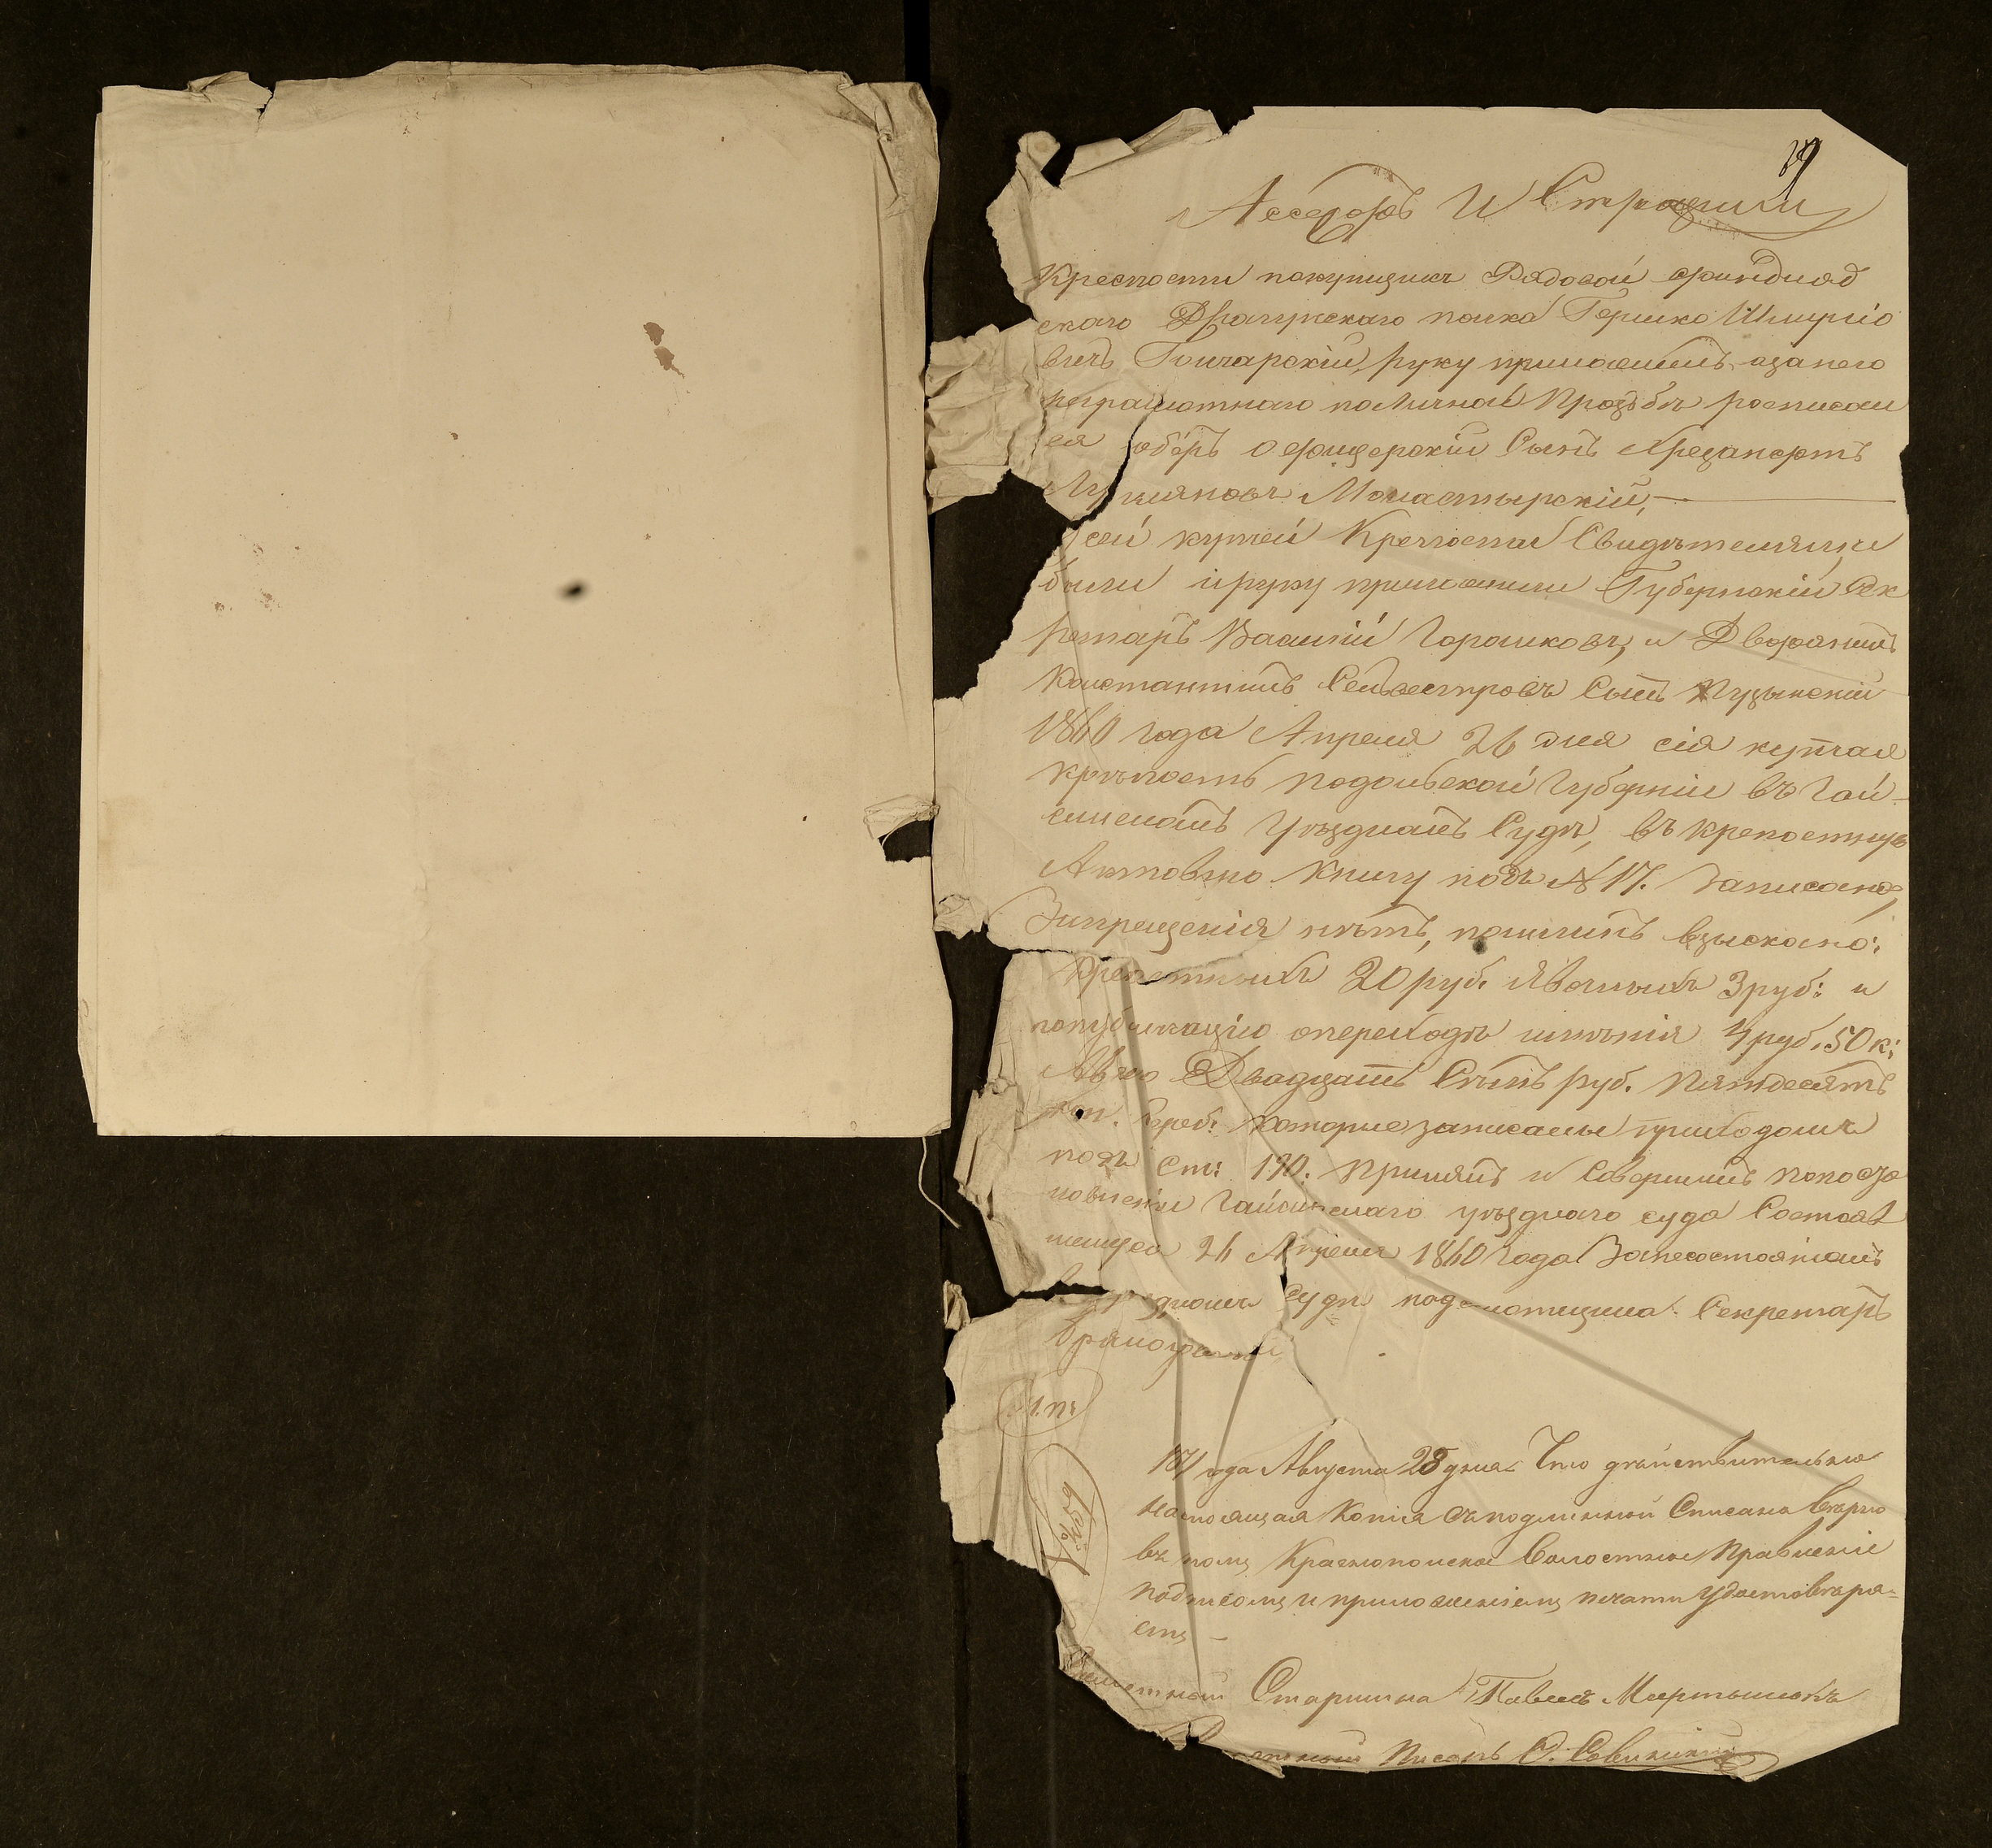 19
Ассесоръ И Страции
Крепости покупщикъ Рядовой финлянд
скаго Драгунскаго полка Гершко Шмуліо
вичъ Гончарскій, руку приложилъ, азанего
неграмотнаго поличной прозьбѣ росписал
ся оберъ офицерскій Сынъ
Лукіяновъ Монастырскій, —
сей купчей Крепости Свидѣтелями
были ируку приложили Губернскій Сек
ретарь Василій Горошковъ, и Дворянинъ
Константинъ Селвестровъ Сынъ Пузынскій
1860 года Апреля 26 дня сія купчая
крѣпость подольской Губерніи въ Гай-
синскомъ Уѣздномъ Судѣ, въ крепостную
Актовую Книгу подъ №17. Записана,
Запрещенія нѣтъ, пошлинъ взыскано:
Крепостныхъ 20 руб. Явочныхъ 3 руб: и
попубликацію опереходѣ имѣнія 4 руб. 50 к:
Авсего Двадцать Семь руб. Пятдесятъ
коп. Сереб: которые записаны приходомъ
подъ Ст: 190. Принялъ и Совершилъ попоста
новленію Гайсинскаго уѣзднаго суда Состояв
шемуся 26 Апреля 1860 года Занесостояніемъ
въ уѣздномъ Судѣ надсмотщика. Секретарь

М.П.
1871 года Августа 28 дня Что дѣйствительно
настоящая Копія съподлинной Списана вѣрно
въ томъ Краснопольское Волостное Правленіе
подписомъ и приложеніемъ печати Удостовѣря-
етъ –
Волостной Старшина Павелъ Мартынюкъ
Волостный Писарь С. Савицкій